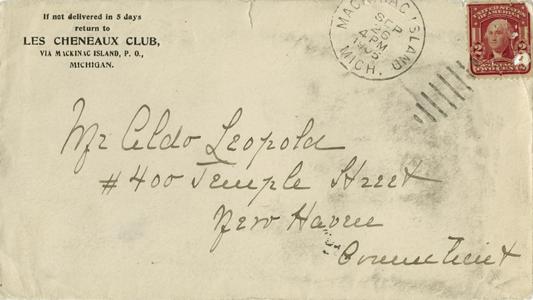 If not delivered in 5 days
return to
LES CHENEAUX CLUB,
VIA MACKINAC ISLAND, P. O.,
MICHIGAN.
MACKINAC ISLAND
SEP
26
4 PM
MICH.
2 2
TWO CENTS
Mr Aldo Leopold
# 400 Temple Street
New Haven
Connecticut